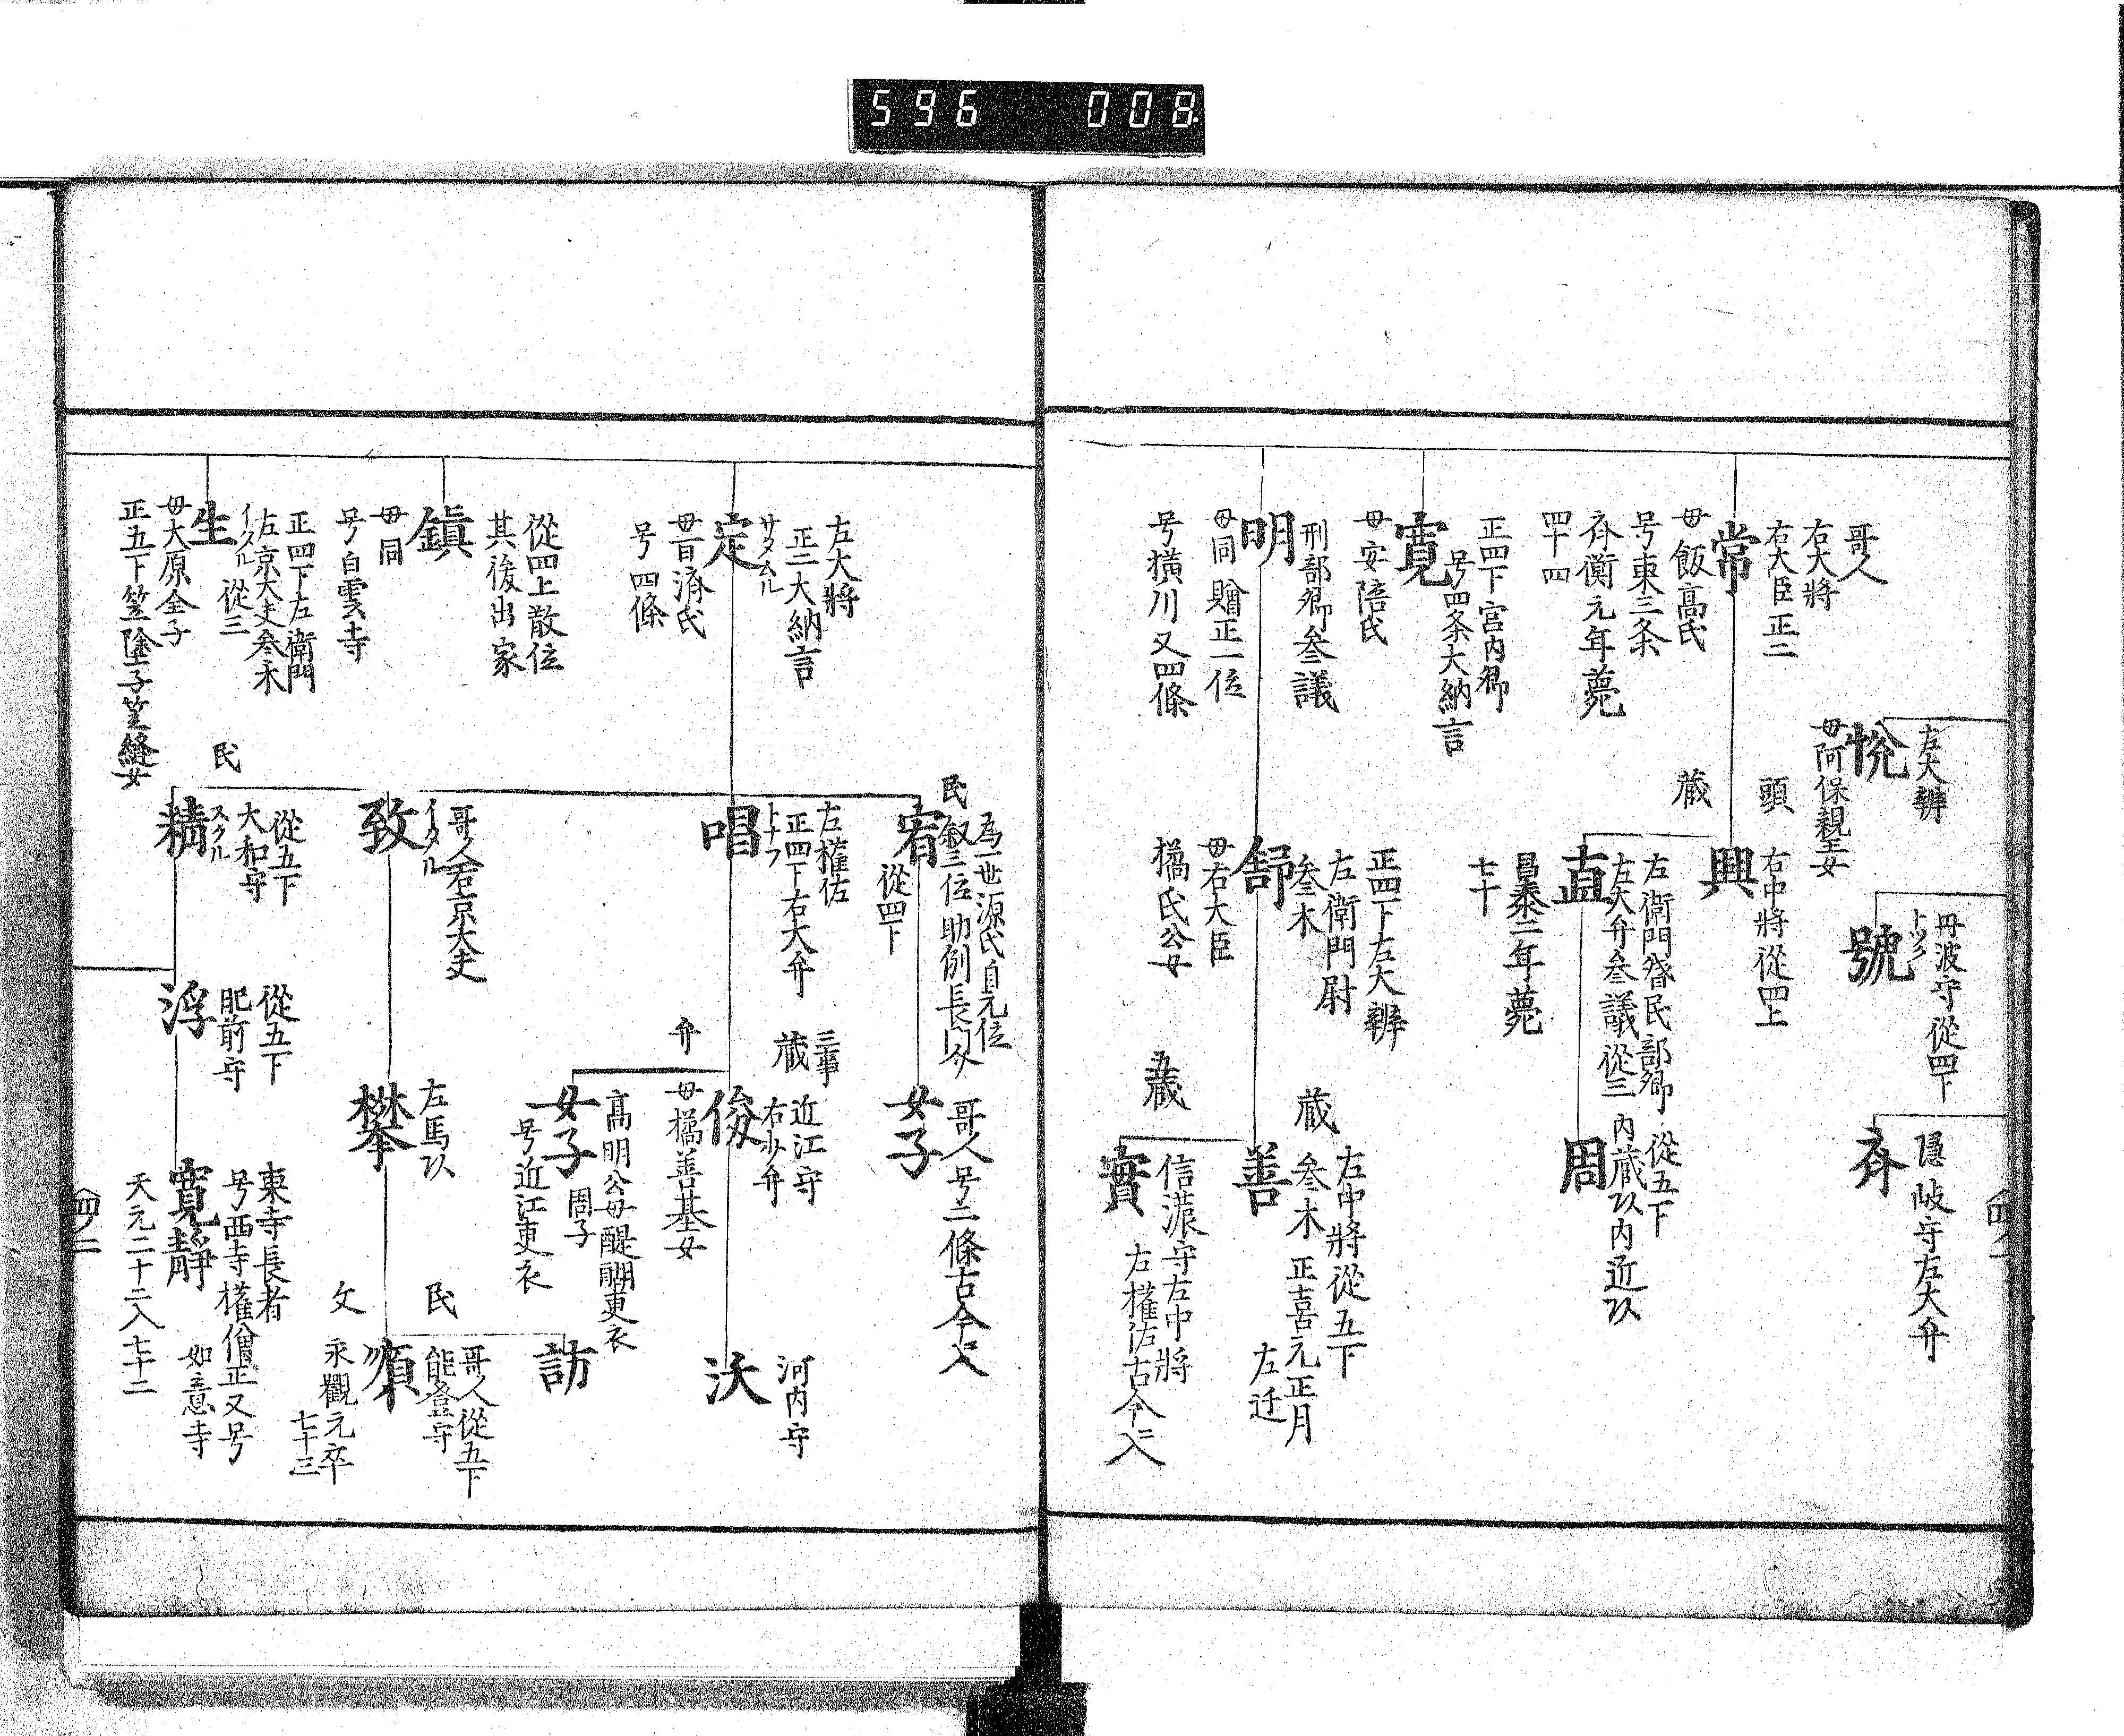 596 008
左大辨
悦
母阿保親王女
丹波守從四下
號
隠岐守左大弁
斉
哥人
右大将
右大臣正二
常
母飯髙氏
号東三条
斉衡元年薨
四十四
頭
右中将從四上
興
蔵
左衛門督民部卿
左大弁参議從三
直
昌泰二年薨
七十
從五下
内蔵以内近以
周
正四下宮内卿
号四条大納言
寛
母安陪氏
刑部卿参議
明
母同贈正一位
号横川又四條
正四下左大辨
左衛門尉
参木
舒
母右大臣
橘氏公女
蔵
左中将從五下
参木正喜元正月
左迁
善
五蔵
信濃守左中将
左権佐古今入
實
左大将
正二大納言
サタムル
定
母百済氏
号四條
民
為一世源氏自元位
叙三位助例長以
從四下
宥
哥人号二條古今ニ入
女子
左権佐
正四下右大弁
トナフ
唱
三事
蔵
近江守
右少弁
俊
弁
母橘善基女
河内守
沃
髙明公母醍醐更衣
周子
女子
号近江更衣
從四上散位
其後出家
鎮
母同
号白雲寺
哥人右京大夫
イタル
致
左馬以
攀
訪
民
哥人從五下
能登守
順
文
永觀元卒
七十三
正四下左衛門
左京大夫参木
イクル 從三
生
母大原全子
正五下笠陰子笠縫女
民
從五下
大和守
スクル
精
從五下
肥前守
浮
東寺長者
号西寺権僧正又号
如意寺
寛靜
天元二十二入七十二
四ノ二